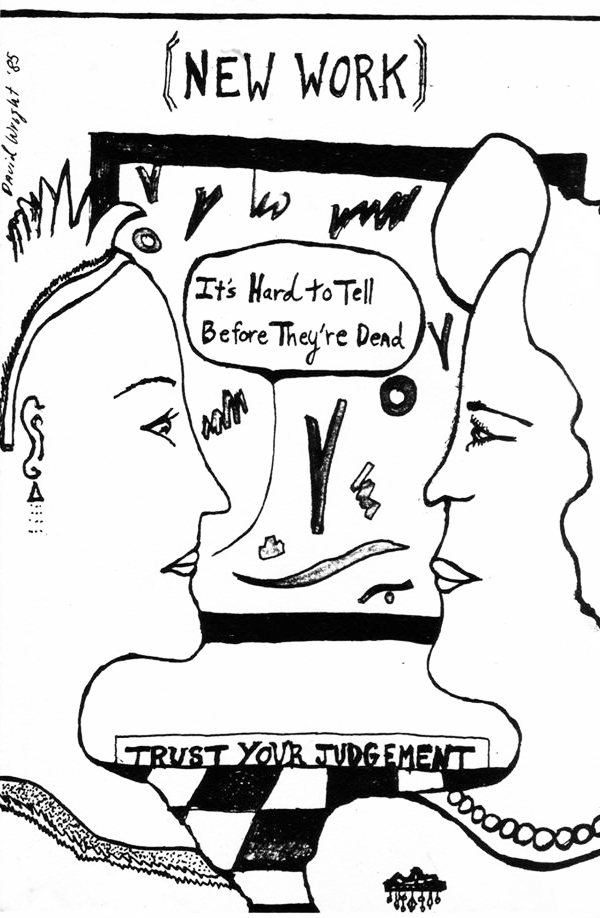 [NEW WORK]
David Wright '85
It's Hard to Tell
Before They're Dead
TRUST YOUR JUDGEMENT